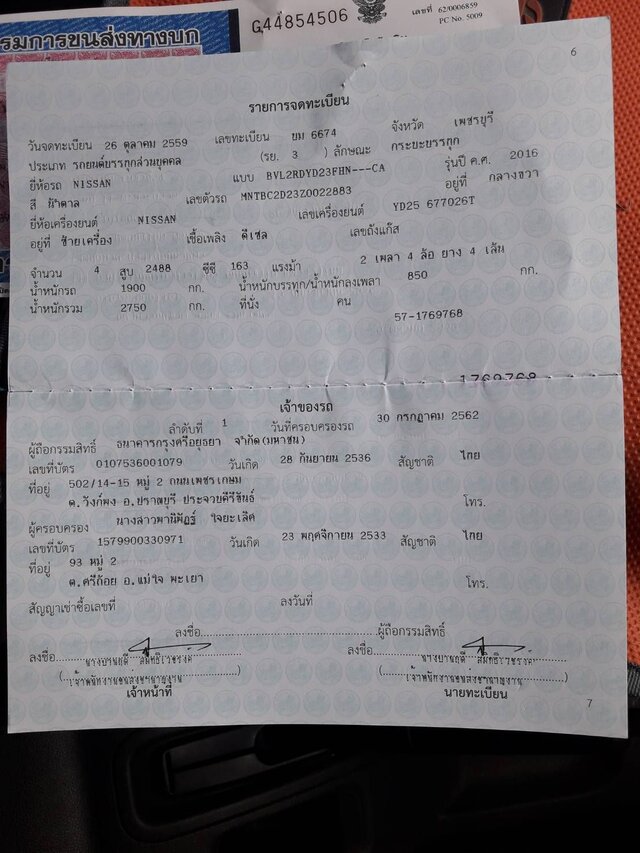 รมการขนส่งทางบก
G44854506
เลขที่ 62/0006859
PC No. 5009
6
รายการจดทะเบียน
วันจดทะเบียน 26 ตุลาคม 2559 เลขทะเบียน ยม 6674 จังหวัด เพชรบุรี
ประเภท รถยนต์บรรทุกส่วนบุคคล (รย. 3 ) ลักษณะ กระบะบรรทุก
ยี่ห้อรถ NISSAN แบบ BVL2RDYD23FHN---CA รุ่นปี ค.ศ. 2016
สี น้ำตาล เลขตัวรถ MNTBC2D23Z0022883 อยู่ที่ กลางขวา
ยี่ห้อเครื่องยนต์ NISSAN เลขเครื่องยนต์ YD25 677026T
อยู่ที่ ซ้ายเครื่อง เชื้อเพลิง ดีเซล เลขถังแก๊ส
จำนวน 4 สูบ 2488 ซีซี 163 แรงม้า 2 เพลา 4 ล้อ ยาง 4 เส้น
น้ำหนักรถ 1900 กก. น้ำหนักบรรทุก/น้ำหนักลงเพลา 850 กก.
น้ำหนักรวม 2750 กก. ที่นั่ง คน
57-1769768
1769768
เจ้าของรถ
ลำดับที่ 1 วันที่ครอบครองรถ 30 กรกฎาคม 2562
ผู้ถือกรรมสิทธิ์ ธนาคารกรุงศรีอยุธยา จำกัด(มหาชน)
เลขที่บัตร 0107536001079 วันเกิด 28 กันยายน 2536 สัญชาติ ไทย
ที่อยู่ 502/14-15 หมู่ 2 ถนนเพชรเกษม
ต.วังก์พง อ.ปราณบุรี ประจวบคีรีขันธ์ โทร.
ผู้ครอบครอง นางสาวพานิพัฏฐ์ ใจยะเลิศ
เลขที่บัตร 1579900330971 วันเกิด 23 พฤศจิกายน 2533 สัญชาติ ไทย
ที่อยู่ 93 หมู่ 2
ต.ศรีถ้อย อ.แม่ใจ พะเยา โทร.
สัญญาเช่าซื้อเลขที่ ลงวันที่
ลงชื่อ ผู้ถือกรรมสิทธิ์
ลงชื่อ ลงชื่อ
เจ้าพนักงานขนส่งชำนาญงาน เจ้าพนักงานขนส่งชำนาญงาน
เจ้าหน้าที่ นายทะเบียน
7